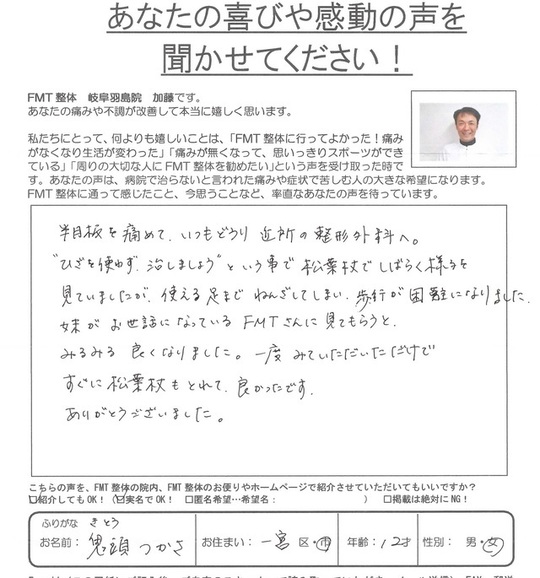 あなたの喜びや感動の声を
聞かせてください！
FMT整体　岐阜羽島院　加藤です。
あなたの痛みや不調が改善して本当に嬉しく思います。
私たちにとって、何よりも嬉しいことは、「FMT整体に行ってよかった！痛み
がなくなり生活が変わった」「痛みが無くなって、思いっきりスポーツができ
ている」「周りの大切な人にFMT整体を勧めたい」という声を受け取った時で
す。あなたの声は、病院で治らないと言われた痛みや症状で苦しむ人の大きな希望になります。
FMT整体に通って感じたこと、今思うことなど、率直なあなたの声を待っています。
半月板を痛めて、いつもどうり 近所の整形外科へ。
"ひざを使わず、治しましょう"という事で松葉杖でしばらく様子を
見ていましたが、使える足まで ねんざしてしまい、歩行が困難になりました。
妹がお世話になっている FMTさんに見てもらうと、
みるみる 良くなりました。一度 みていただいただけで
すぐに松葉杖もとれて、良かったです。
ありがとうございました。
こちらの声を、FMT整体の院内、FMT整体のお便りやホームページで紹介させていただいてもいいですか？
☐紹介してもOK！ ☑実名でOK！ ☐匿名希望…希望名：　　　　　　　） ☐掲載は絶対にNG！
ふりがな きとう
お名前： 鬼頭 つかさ お住まい： 一宮 区・市 年齢： 12才 性別： 男・女